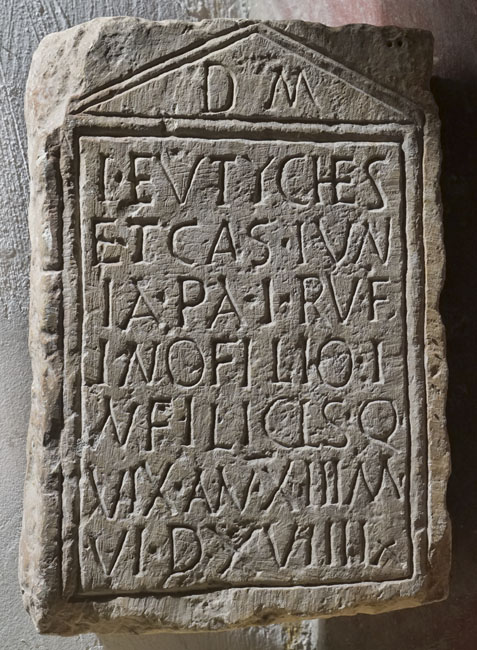 D M
I·EVTYCHES
ET CAS·IVN
IA·PA·I·RVF
I·NOFILIO·I
NFILICI·SQ
VIX·AN·XIII·M
VI·DXVIIII